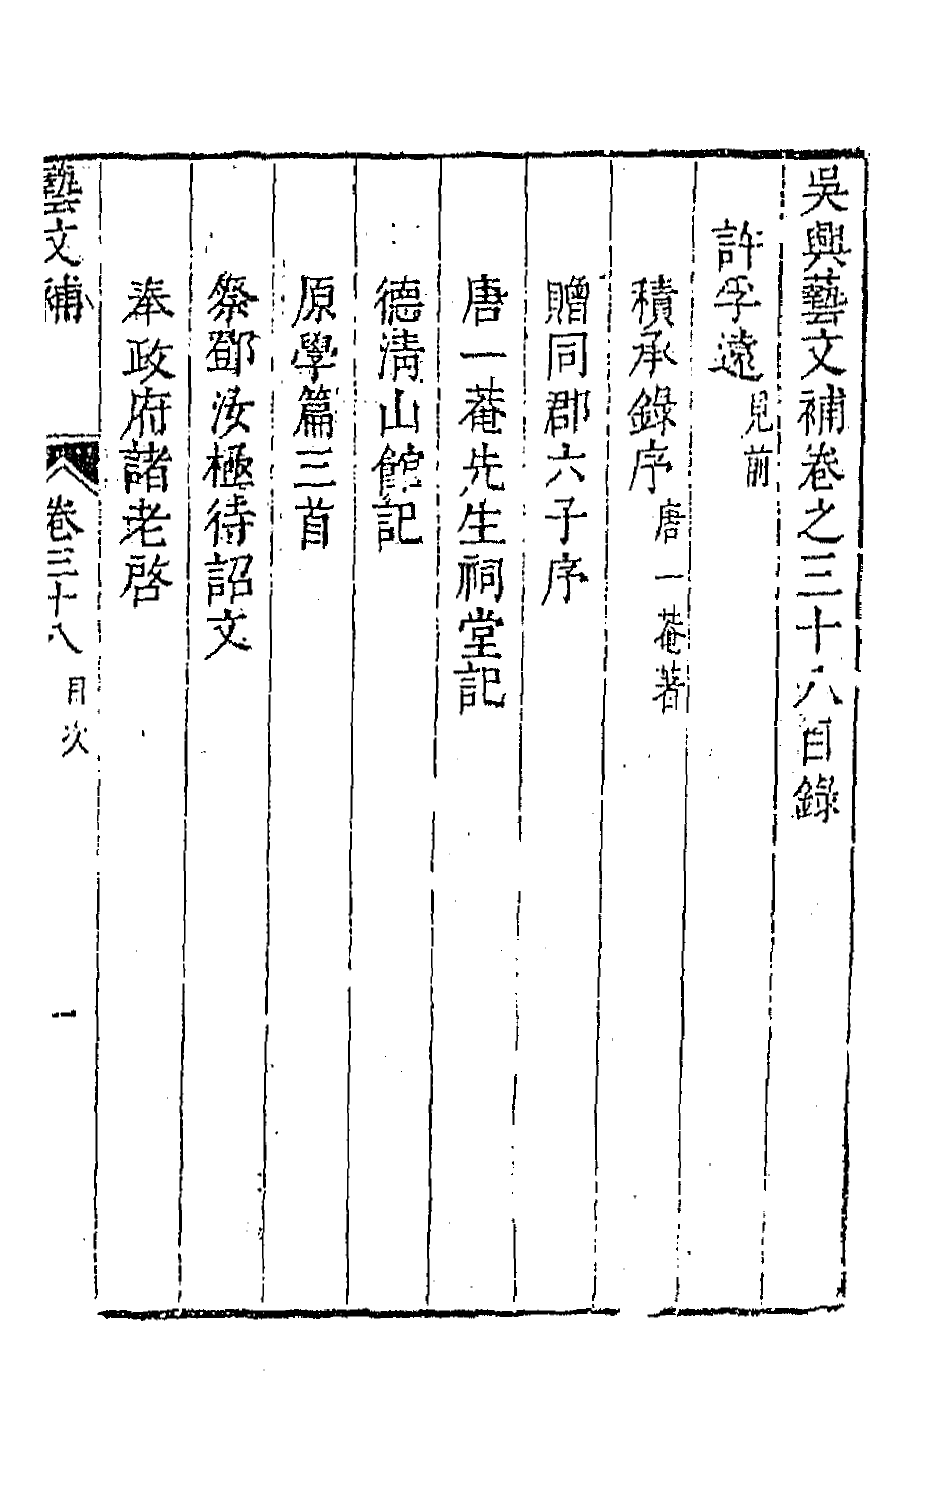 吳興藝文補卷之三十八目錄
許孚遠見前
積承錄序唐一菴著
贈同郡六子序
唐一菴先生祠堂記
德清山館記
原學篇三首
祭鄧汝極待詔文
奉政府諸老啓
藝文補 卷三十八 目次 一